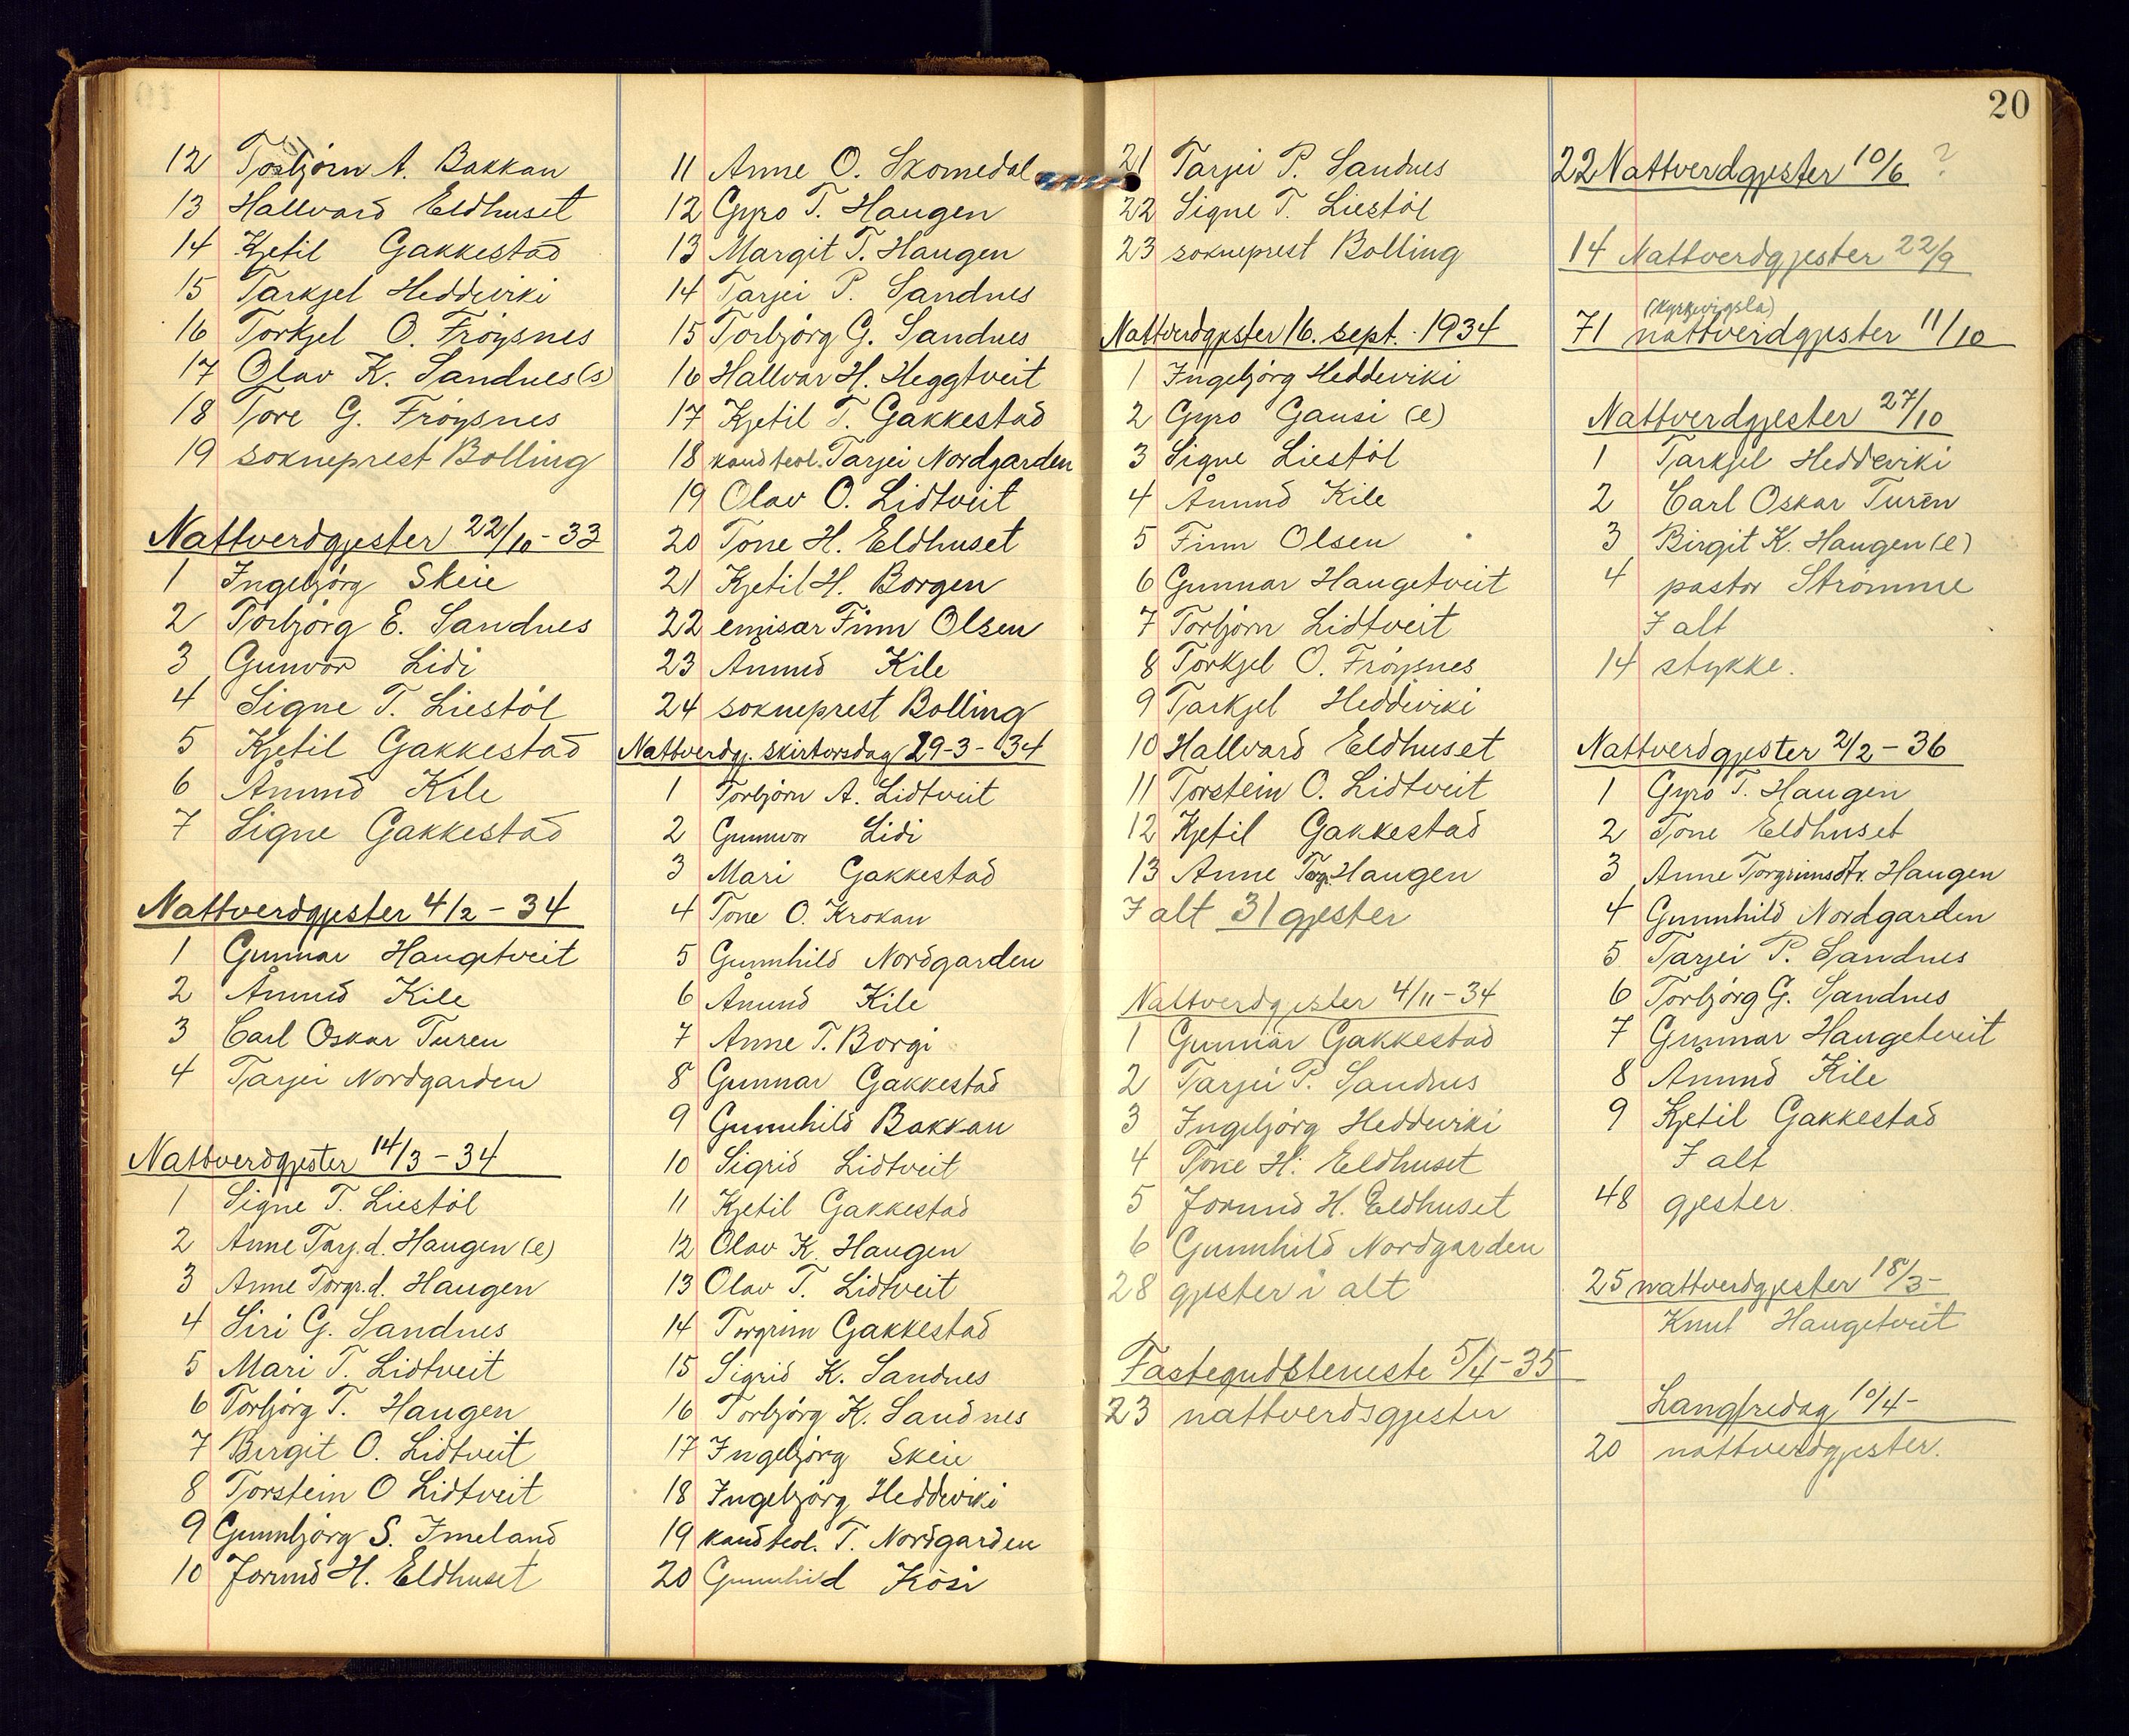 20
12 Torbjörn A. Bakkan
13 Hallvard Eldhuset
14 Kjetil Gakkestad
15 Tarkjel Heddeviki
16 Torkjel O. Fröysnes
17 Olav K. Sandnes (s)
18 Tore G. Fröysnes
19 sokneprest Bolling
Nattverdgjester 22/10 - 33
1 Ingebjörg Skeie
2 Torbjörg E. Sandnes
3 Gunvor Lidi
4 Signe T. Liestöl
5 Kjetil Gakkestad
6 Åmund Kile
7 Signe Gakkestad
Nattverdgjester 4/2 - 34
1 Gunnar Haugetveit
2 Åmund Kile
3 Carl Oskar Turen
4 Tarjei Nordgarden
Nattverdgjester 14/3 - 34
1 Signe T. Liestöl
2 Anne Tarj.d. Haugen (e)
3 Anne Torgr.d. Haugen
4 Siri G. Sandnes
5 Mari T. Lidtveit
6 Torbjörg T. Haugen
7 Birgit O. Lidtveit
8 Torstein O Lidtveit
9 Gunnbjörg S. Imeland
10 Jorund H. Eldhuset
11 Anne O. Skomedal
12 Gyro T. Haugen
13 Margit T. Haugen
14 Tarjei P. Sandnes
15 Torbjörg G. Sandnes
16 Hallvar H. Heggtveit
17 Kjetil T. Gakkestad
18 kand teol. Tarjei Nordgarden
19 Olav O. Lidtveit
20 Tone H. Eldhuset
21 Kjetil H. Borgen
22 emisar Finn Olsen
23 Åmund Kile
24 sokneprest Bolling
Nattverdgj. skirtorsdag 29-3-34
1 Torbjörn A. Lidtveit
2 Gunnvor Lidi
3 Mari Gakkestad
4 Tone O. Krokan
5 Gunnhild Nordgarden
6 Åmund Kile
7 Anne T. Borgi
8 Gunnar Gakkestad
9 Gunnhild Bakkan
10 Sigrid Lidtveit
11 Kjetil Gakkestad
12 Olav K. Haugen
13 Olav T. Lidtveit
14 Torgrim Gakkestad
15 Sigrid K. Sandnes
16 Torbjörg K. Sandnes
17 Ingebjörg Skeie
18 Ingebjörg Heddeviki
19 kand teol. T. Nordgarden
20 Gunnhild Kösi
21 Tarjei P. Sandnes
22 Signe T. Liestöl
23 sokneprest Bolling
Nattverdgjester 16. sept. 1934
1 Ingebjörg Heddeviki
2 Gyro Gausi (e)
3 Signe Liestöl
4 Åmund Kile
5 Finn Olsen
6 Gunnar Haugetveit
7 Torbjörn Lidtveit
8 Torkjel O. Fröysnes
9 Tarkjel Heddeviki
10 Hallvard Eldhuset
11 Torstein O. Lidtveit
12 Kjetil Gakkestad
13 Anne Torgr. Haugen
I alt 31 gjester
Nattverdgjester 4/11 - 34
1 Gunnar Gakkestad
2 Tarjei P. Sandnes
3 Ingebjörg Heddeviki
4 Tone H. Eldhuset
5 Jorund H. Eldhuset
6 Gunnhild Nordgarden
28 gjester i alt
Fastegudsteneste 5/4 - 35
23 nattverdsgjester
22 Nattverdgjester 10/6 ?
14 Nattverdgjester 22/9
(kyrkjevigsla)
71 nattverdgjester 11/10
Nattverdgjester 27/10
1 Tarkjel Heddeviki
2 Carl Oskar Turen
3 Birgit K. Haugen (e)
4 pastor Strömme
I alt
14 stykke.
Nattverdgjester 2/2 - 36
1 Gyro T. Haugen
2 Tone Eldhuset
3 Anne Torgrimsdtr. Haugen
4 Gunnhild Nordgarden
5 Tarjei P. Sandnes
6 Torbjörg G. Sandnes
7 Gunnar Haugetveit
8 Åmund Kile
9 Kjetil Gakkestad
I alt
48 gjester
25 nattverdgjester 18/3 -
Knut Haugetveit
Langfredag 10/4 -
20 nattverdgjester.